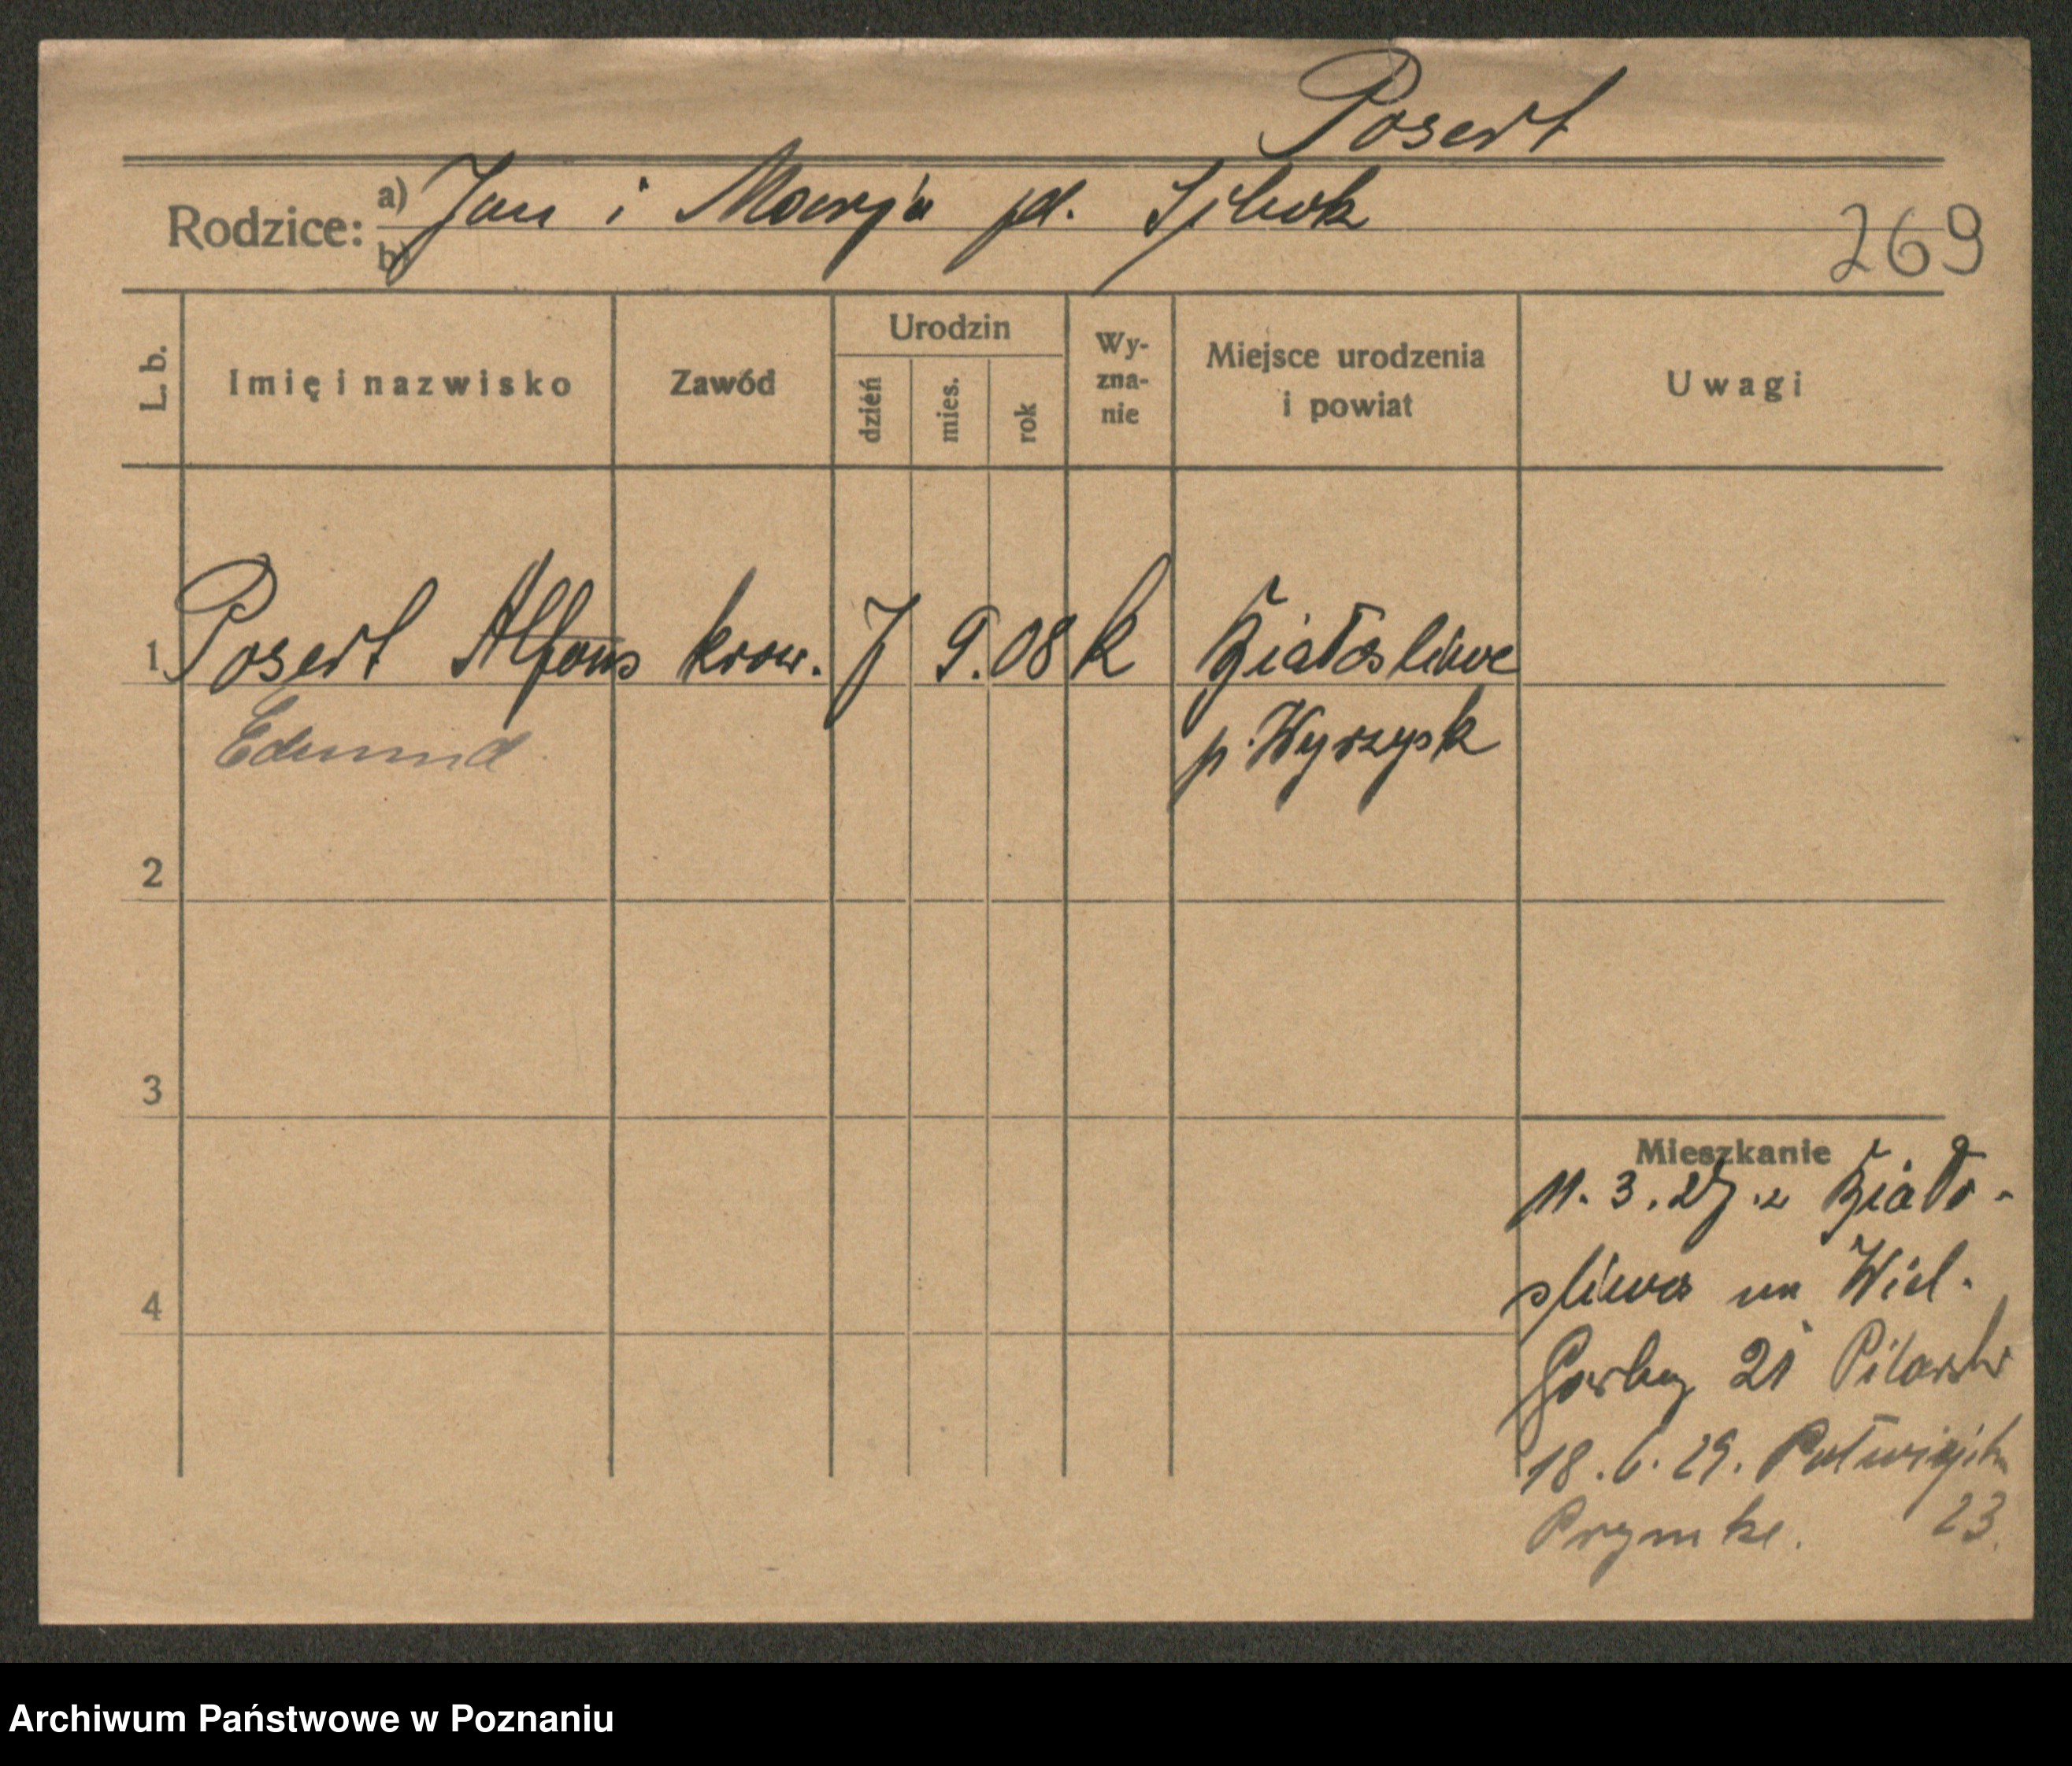 Posert
Rodzice: a) Jan i Maryja pd.
b)
269
L. b.
Imię i nazwisko
Zawód
Urodzin
dzień
mies.
rok
Wy-
zna-
nie
Miejsce urodzenia
i powiat
Uwagi
1 Posert Alfons kraw. 7 9. 08 k Białosliwe
Edmund
p. Wyrzysk
2
3
4
Mieszkanie
11. 3. 27. z Biało-
sliwa na Wiel.
Garbary 21
18. 6. 29. Półwiejska
23.
Prymke.
Archiwum Państwowe w Poznaniu